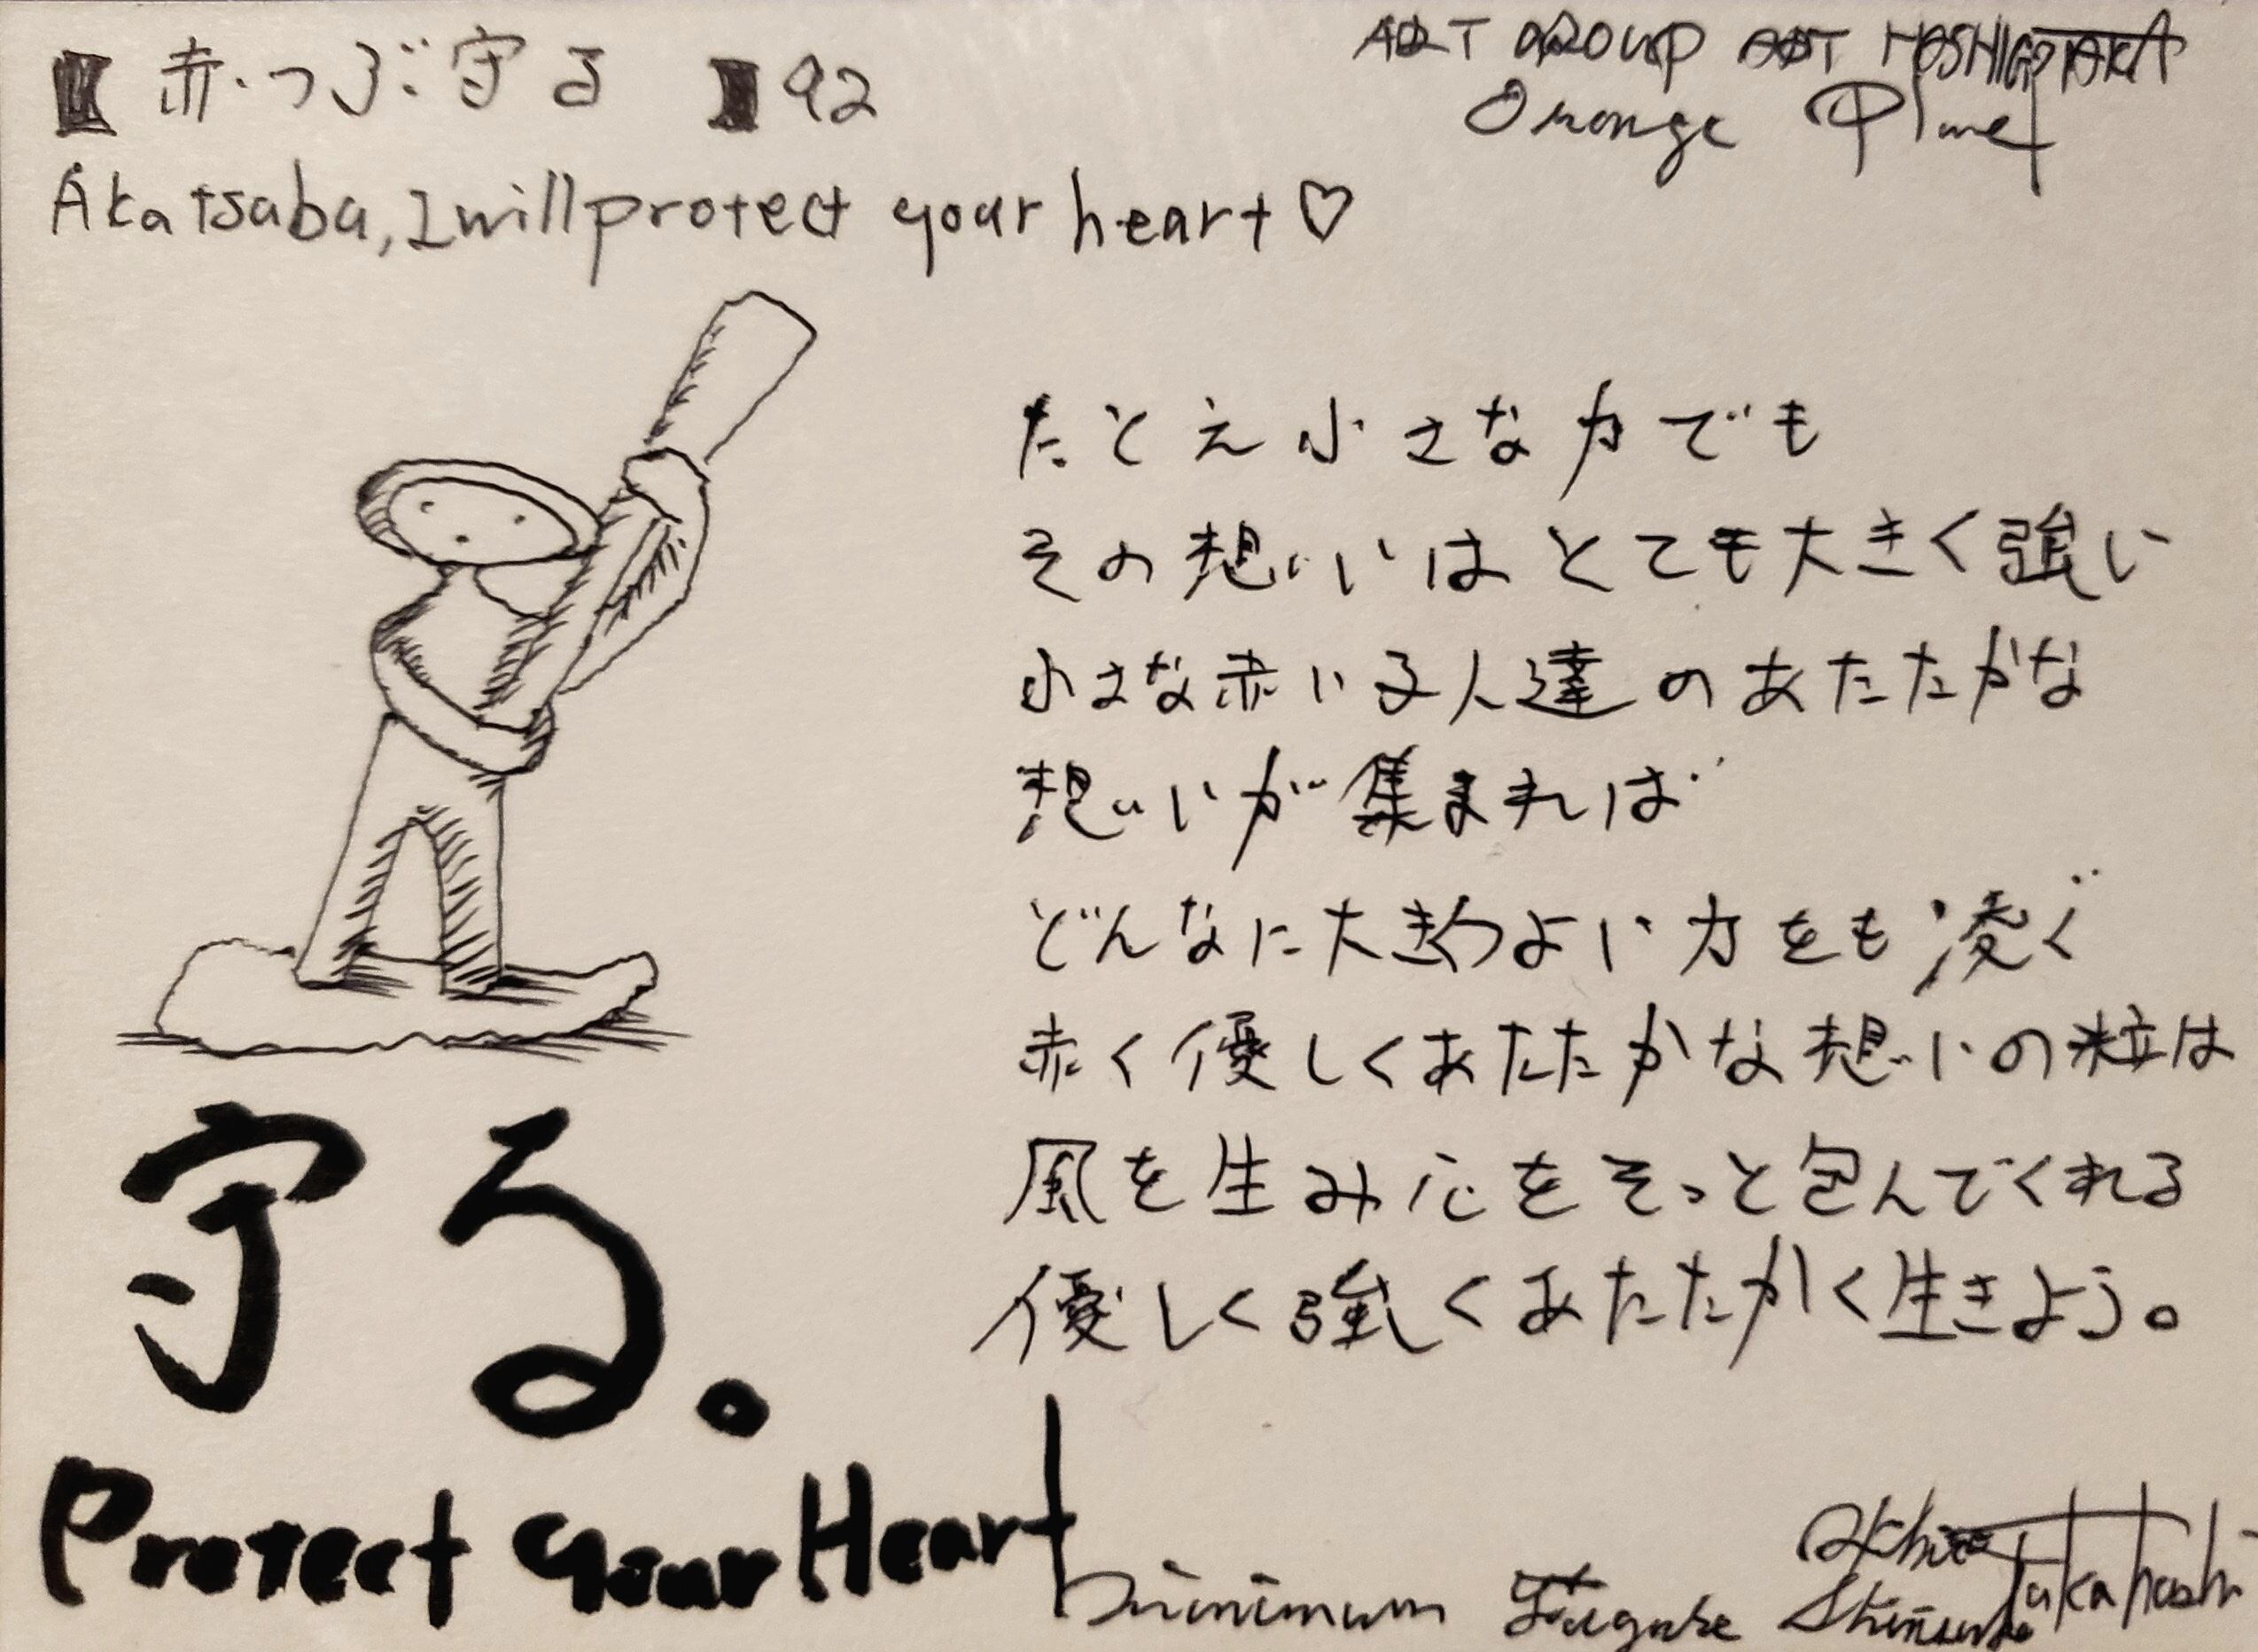 【赤つぶ守る】92
ART GROUP ART HOSHIGATAKA
Orange Planet
Akatsubu, I will protect your heart♡
たとえ小さな力でも
その想いはとても大きく強い
小さな赤い子人達のあたたかな
想いが集まれば
どんなに大きくつよい力をも凌ぐ
赤く優しくあたたかな想いの粒は
風を生み心をそっと包んでくれる
優しく強くあたたかく生きよう。
守る。
Protect your Heart
minimum
Takahashi